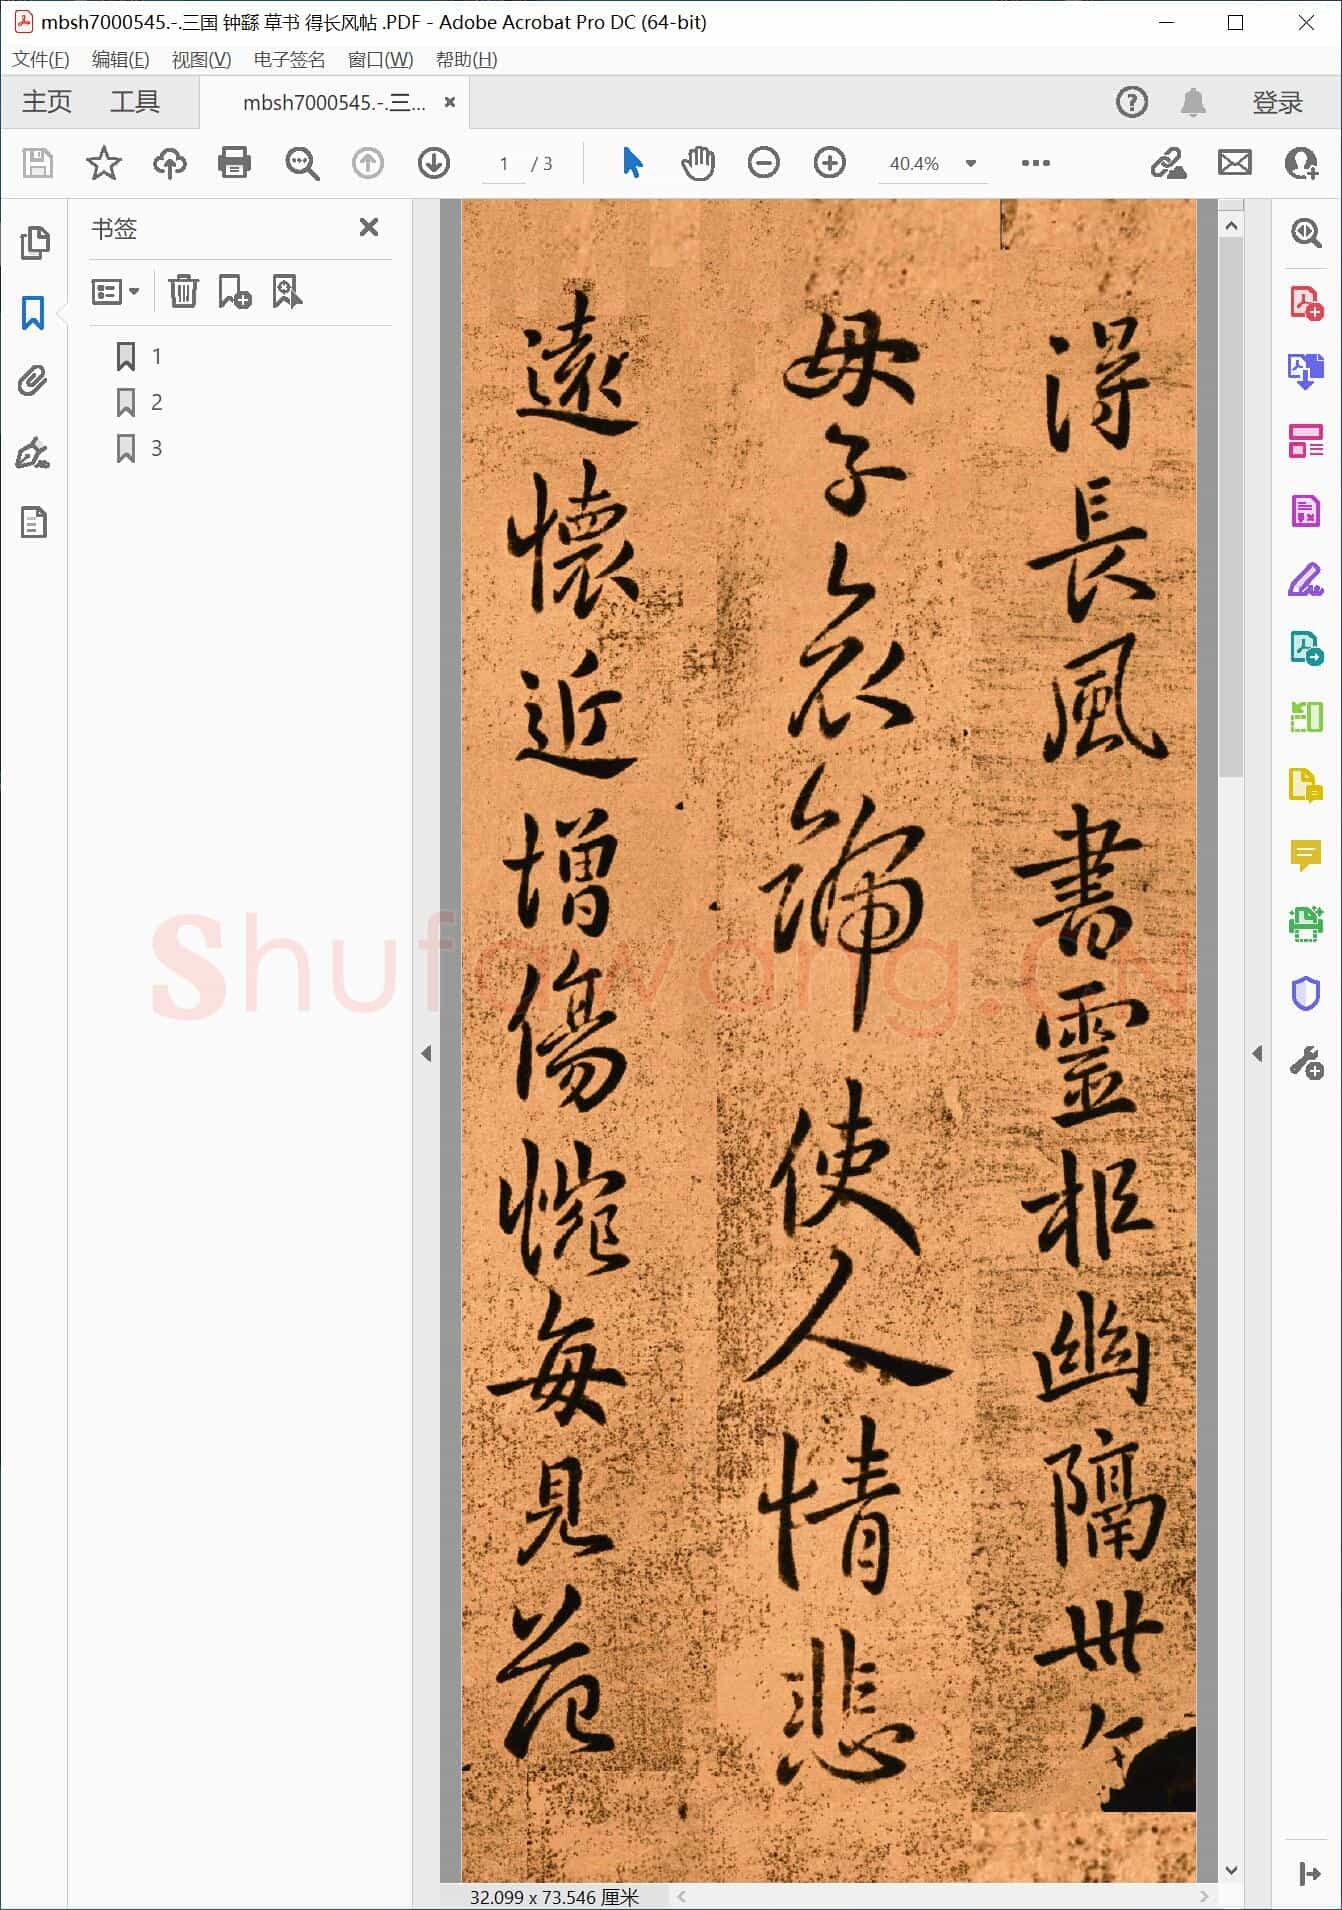 mbsh7000545.-.三国 钟繇 草书 得长风帖 .PDF - Adobe Acrobat Pro DC (64-bit)
文件(F) 编辑(E) 视图(V) 电子签名 窗口(W) 帮助(H)
主页 工具 mbsh7000545.-.三... × 登录
1 / 3 40.4%
书签
1
2
3
得長風書靈柩幽隔卅
母子哀使人情悲
遠懷近增傷惋每見范
Shufawang.CN
32.099 x 73.546 厘米